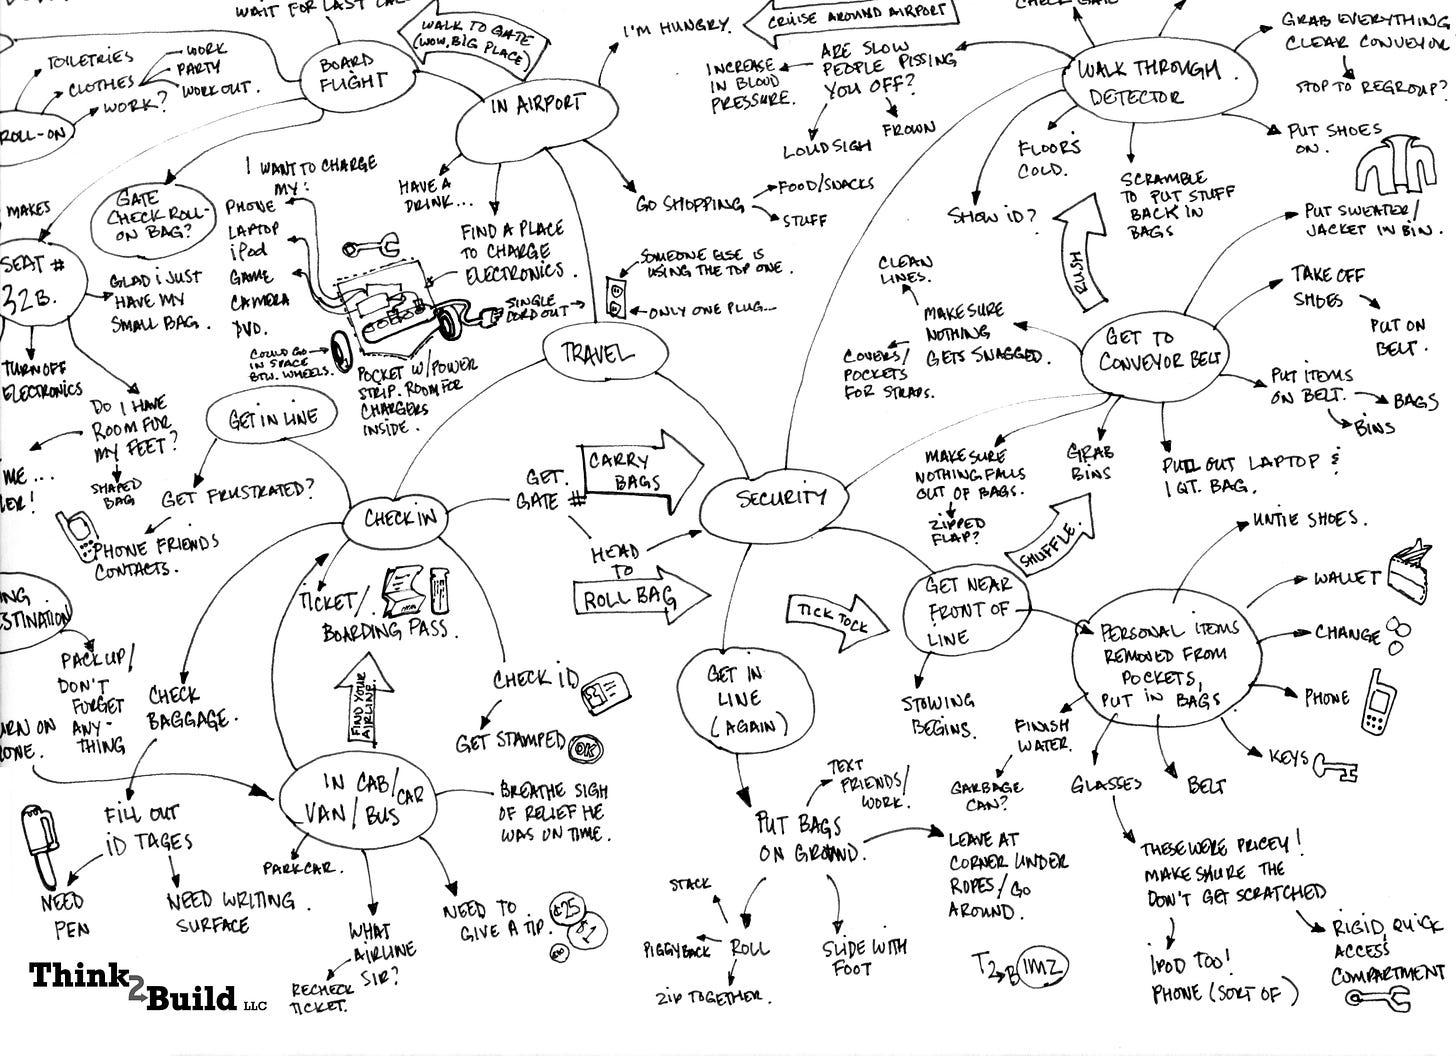 WAIT FOR LAST
TOILETRIES
CLOTHES
WORK
PARTY
WORK OUT.
WORK?
ROLL-ON
BOARD
FLIGHT
WALK TO GATE
(WOW, BIG PLACE)
IN AIRPORT
I'M HUNGRY.
CRUISE AROUND AIRPORT
ARE SLOW
PEOPLE PISSING
YOU OFF?
INCREASE
IN BLOUD
PRESSURE.
LOUD SIGH
FROWN
CHECK GATE
WALK THROUGH
DETECTOR
GRAB EVERYTHING
CLEAR CONVEYOR
STOP TO REGROUP?
PUT SHOES
ON.
FLOORS
COLD.
SHOW ID?
SCRAMBLE
TO PUT STUFF
BACK IN
BAGS
RUSH
PUT SWEATER/
JACKET IN BIN.
MAKES
SEAT #
32B.
GATE
CHECK ROLL-
ON BAG?
GLAD I JUST
HAVE MY
SMALL BAG.
TURN OFF
ELECTRONICS
DO I HAVE
ROOM FOR
MY FEET?
SHAPED
BAG
ME...
ER!
I WANT TO CHARGE
MY:
PHONE
LAPTOP
iPod
GAME
CAMERA
DVD.
COULD GO
IN SPACE
BTW. WHEELS.
POCKET W/POWER
STRIP. ROOM FOR
CHARGERS
INSIDE.
HAVE A
DRINK...
FIND A PLACE
TO CHARGE
ELECTRONICS.
SINGLE
CORD OUT
GO SHOPPING
FOOD/SNACKS
STUFF
SOMEONE ELSE IS
USING THE TOP ONE.
ONLY ONE PLUG...
TRAVEL
CLEAN
LINES.
MAKE SURE
NOTHING
GETS SNAGGED.
COVERS/
POCKETS
FOR STRAPS.
GET TO
CONVEYOR BELT
TAKE OFF
SHOES
PUT ON
BELT.
PUT ITEMS
ON BELT.
BAGS
BINS
MAKE SURE
NOTHING FALLS
OUT OF BAGS.
ZIPPED
FLAP?
GRAB
BINS
PULL OUT LAPTOP &
1 QT. BAG.
GET IN LINE
GET FRUSTRATED?
PHONE FRIENDS
CONTACTS.
CHECK IN
GET
GATE #
CARRY
BAGS
HEAD
TO
ROLL BAG
SECURITY
TICK TOCK
GET NEAR
FRONT OF
LINE
SHUFFLE.
STOWING
BEGINS.
UNTIE SHOES.
PERSONAL ITEMS
REMOVED FROM
POCKETS,
PUT IN BAGS
WALLET
CHANGE
PHONE
KEYS
BELT
GLASSES
FINISH
WATER.
GARBAGE
CAN?
THESE WERE PRICEY!
MAKE SHURE THE
DON'T GET SCRATCHED
IPOD TOO!
PHONE (SORT OF)
RIGID, QUICK
ACCESS
COMPARTMENT
TICKET/
BOARDING PASS.
FIND YOUR
AIRLINE.
CHECK ID
GET STAMPED
OK
GET IN
LINE
(AGAIN)
PUT BAGS
ON GROUND.
TEXT
FRIENDS/
WORK.
LEAVE AT
CORNER UNDER
ROPES/GO
AROUND.
STACK
PIGGYBACK
ROLL
ZIP TOGETHER.
SLIDE WITH
FOOT
T2B IMZ
ING
STINATION
PACK UP/
DON'T
FORGET
ANY-
THING
URN ON
ONE.
CHECK
BAGGAGE.
FILL OUT
ID TAGES
NEED
PEN
NEED WRITING
SURFACE
IN CAB/
VAN/BUS
CAR
PARK CAR.
BREATHE SIGH
OF RELIEF HE
WAS ON TIME.
WHAT
AIRLINE
SIR?
RECHECK
TICKET.
NEED TO
GIVE A TIP.
$25
$1
Think
2
Build LLC